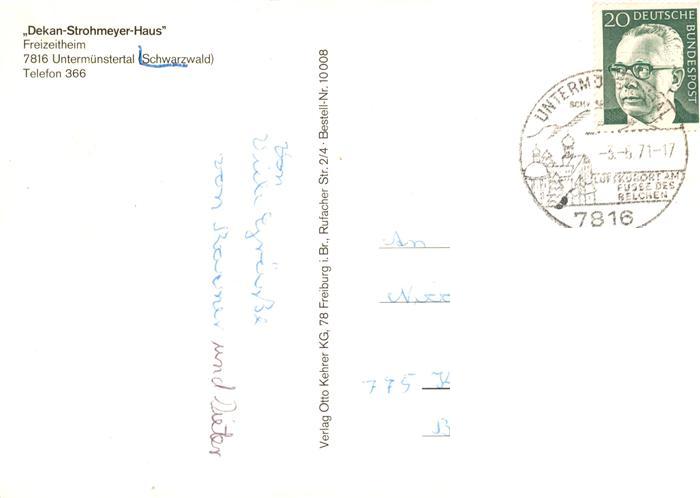 „Dekan-Strohmeyer-Haus"
Freizeitheim
7816 Untermünstertal (Schwarzwald)
Telefon 366
Viele Grüße
von Rainer und Dieter
Verlag Otto Kehrer KG, 78 Freiburg i. Br., Rufacher Str. 2/4 · Bestell-Nr. 10 008
20 DEUTSCHE BUNDESPOST
-3.-6.71-17
LUFTKURORT AM
FUSSE DES
BELCHEN
7816
An
775 K
B